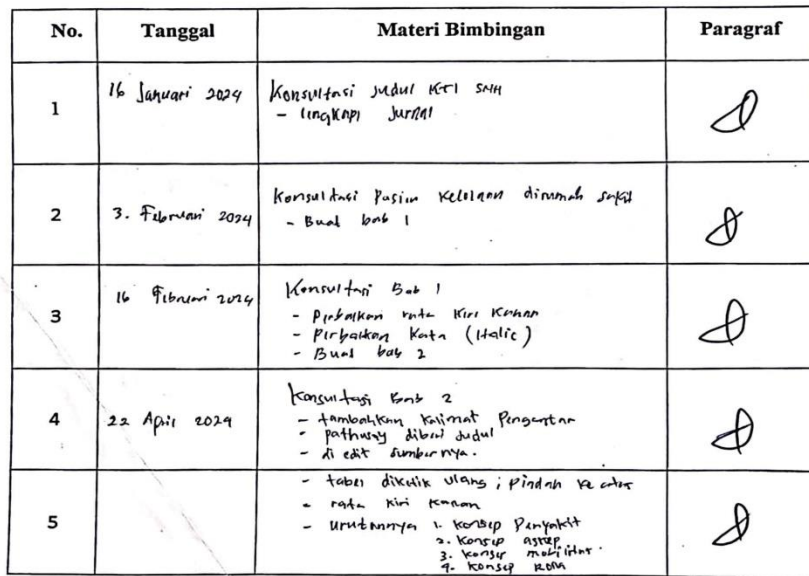 No. Tanggal Materi Bimbingan Paragraf
1 16 Januari 2024 Konsultasi Judul KTI SNH
- lingkapi Jurnal
2 3. Februari 2024 Konsultasi Pasien Kelolaan dirumah sakit
- Buat bab 1
3 16 Februari 2024 Konsultasi Bab 1
- Perbaikan rata Kiri Kanan
- Perbaikan Kata (Italic)
- Buat bab 2
4 22 April 2024 Konsultasi Bab 2
- tambahkan Kalimat Pengantar
- pathway diberi Judul
- di edit sumbernya.
5 - tabel diketik ulang ; Pindah ke atas
- rata Kiri Kanan
- Urutannya 1. Konsep Penyakit
2. Konsep askep
3. Konsep mobilitas
4. Konsep ROM